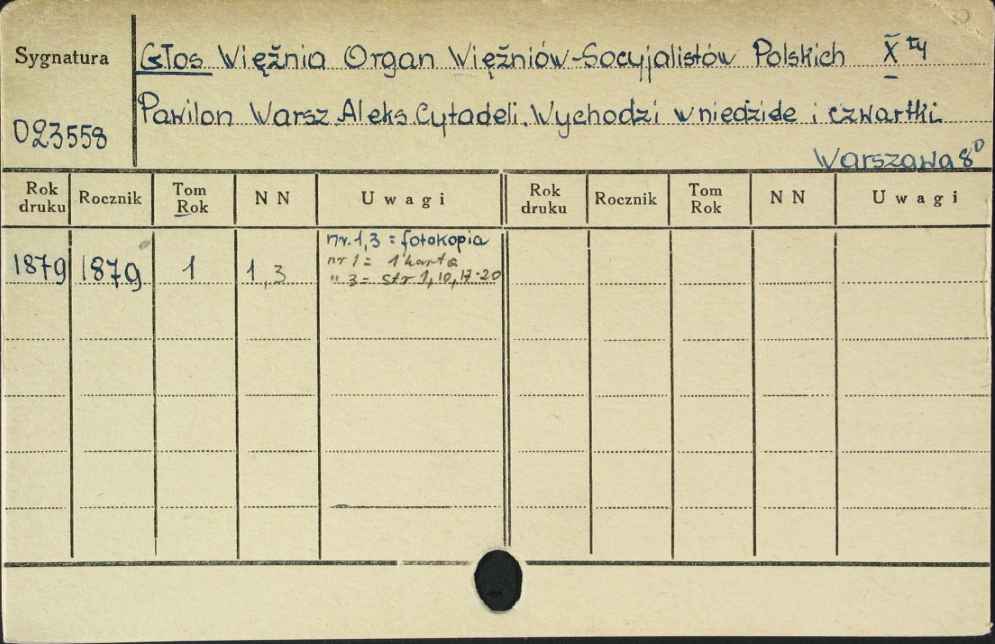 Sygnatura
Głos Więźnia Organ Więźniów-Socyjalistów Polskich X ty
Pawilon Warsz. Aleks. Cytadeli. Wychodzi w niedziele i czwartki.
023558
Warszawa 8°
Rok druku Rocznik Tom Rok NN Uwagi Rok druku Rocznik Tom Rok NN Uwagi
nr. 1, 3 = fotokopia
1879 1879 1 1, 3 nr 1 = 1 karta
" 3 = str 1, 10, 17-20